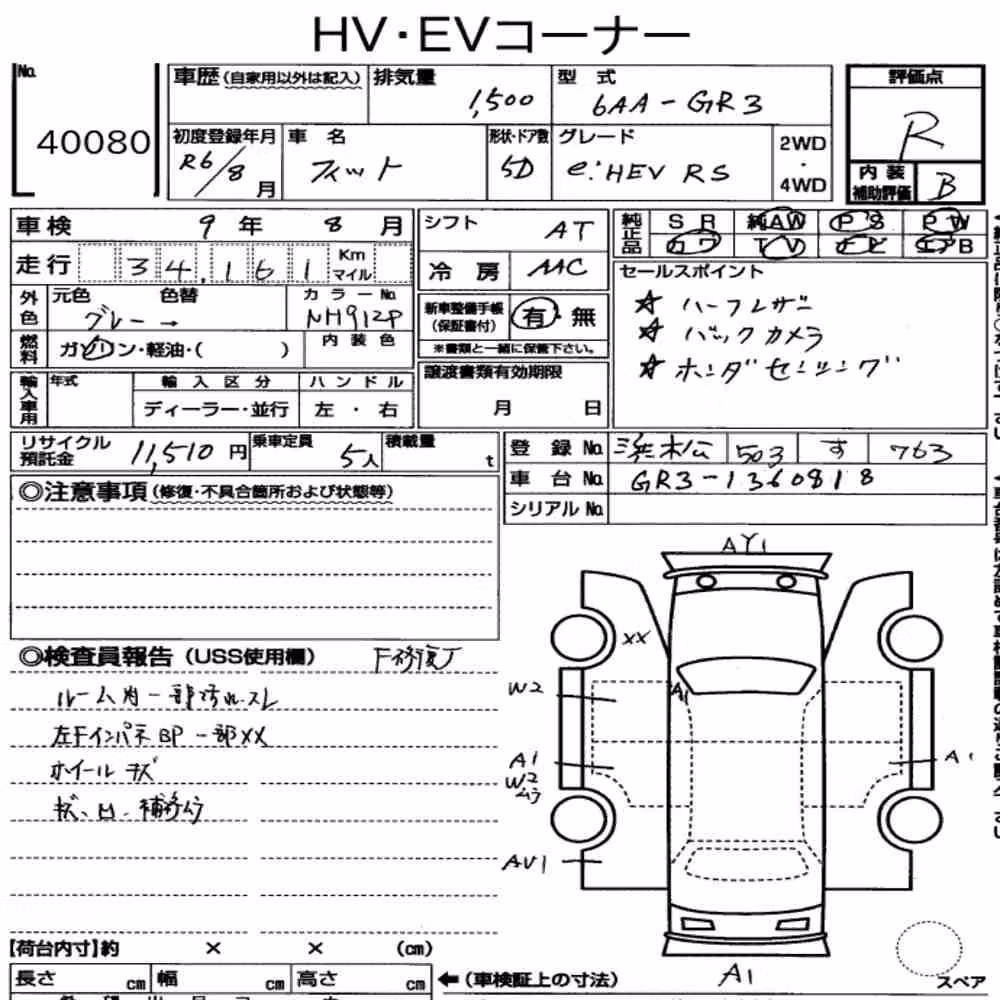 HV・EVコーナー
No. 40080
車歴(自家用以外は記入) 排気量 1,500 型式 6AA-GR3
評価点 R
初度登録年月 R6/8月 車名 フィット 形状・ドア数 5D グレード e:HEV RS 2WD・4WD
内装補助評価 B
車検 9年 8月 シフト AT
純正品 SR 純AW PS PW
カワ TV ナビ エアB
走行 34,161 Km マイル
冷房 AAC
セールスポイント
☆ ハーフレザー
☆ バックカメラ
☆ ホンダセンシング
外色 元色 グレー → 色替 カラーNo. NH912P
新車整備手帳(保証書付) 有 無
※書類と一緒に保管下さい。
燃料 ガソリン・軽油・( ) 内装色
譲渡書類有効期限 月 日
輸入車用 年式 輸入区分 ハンドル
ディーラー・並行 左・右
リサイクル預託金 11,510円 乗車定員 5人 積載量 t
登録No. 浜松 503 す 763
車台No. GR3-1360818
シリアルNo.
◎注意事項(修復・不具合箇所および状態等)
◎検査員報告(USS使用欄) F修復了
ルーム内一部汚れ・スレ
左FインパネBP一部XX
ホイールキズ
キズ、凹、補修ムラ
AY1
XX
W2
A1
A1
W2
ムラ
A1
AU1
A1
スペア
【荷台内寸】約 × × (cm)
長さ cm 幅 cm 高さ cm ←(車検証上の寸法)